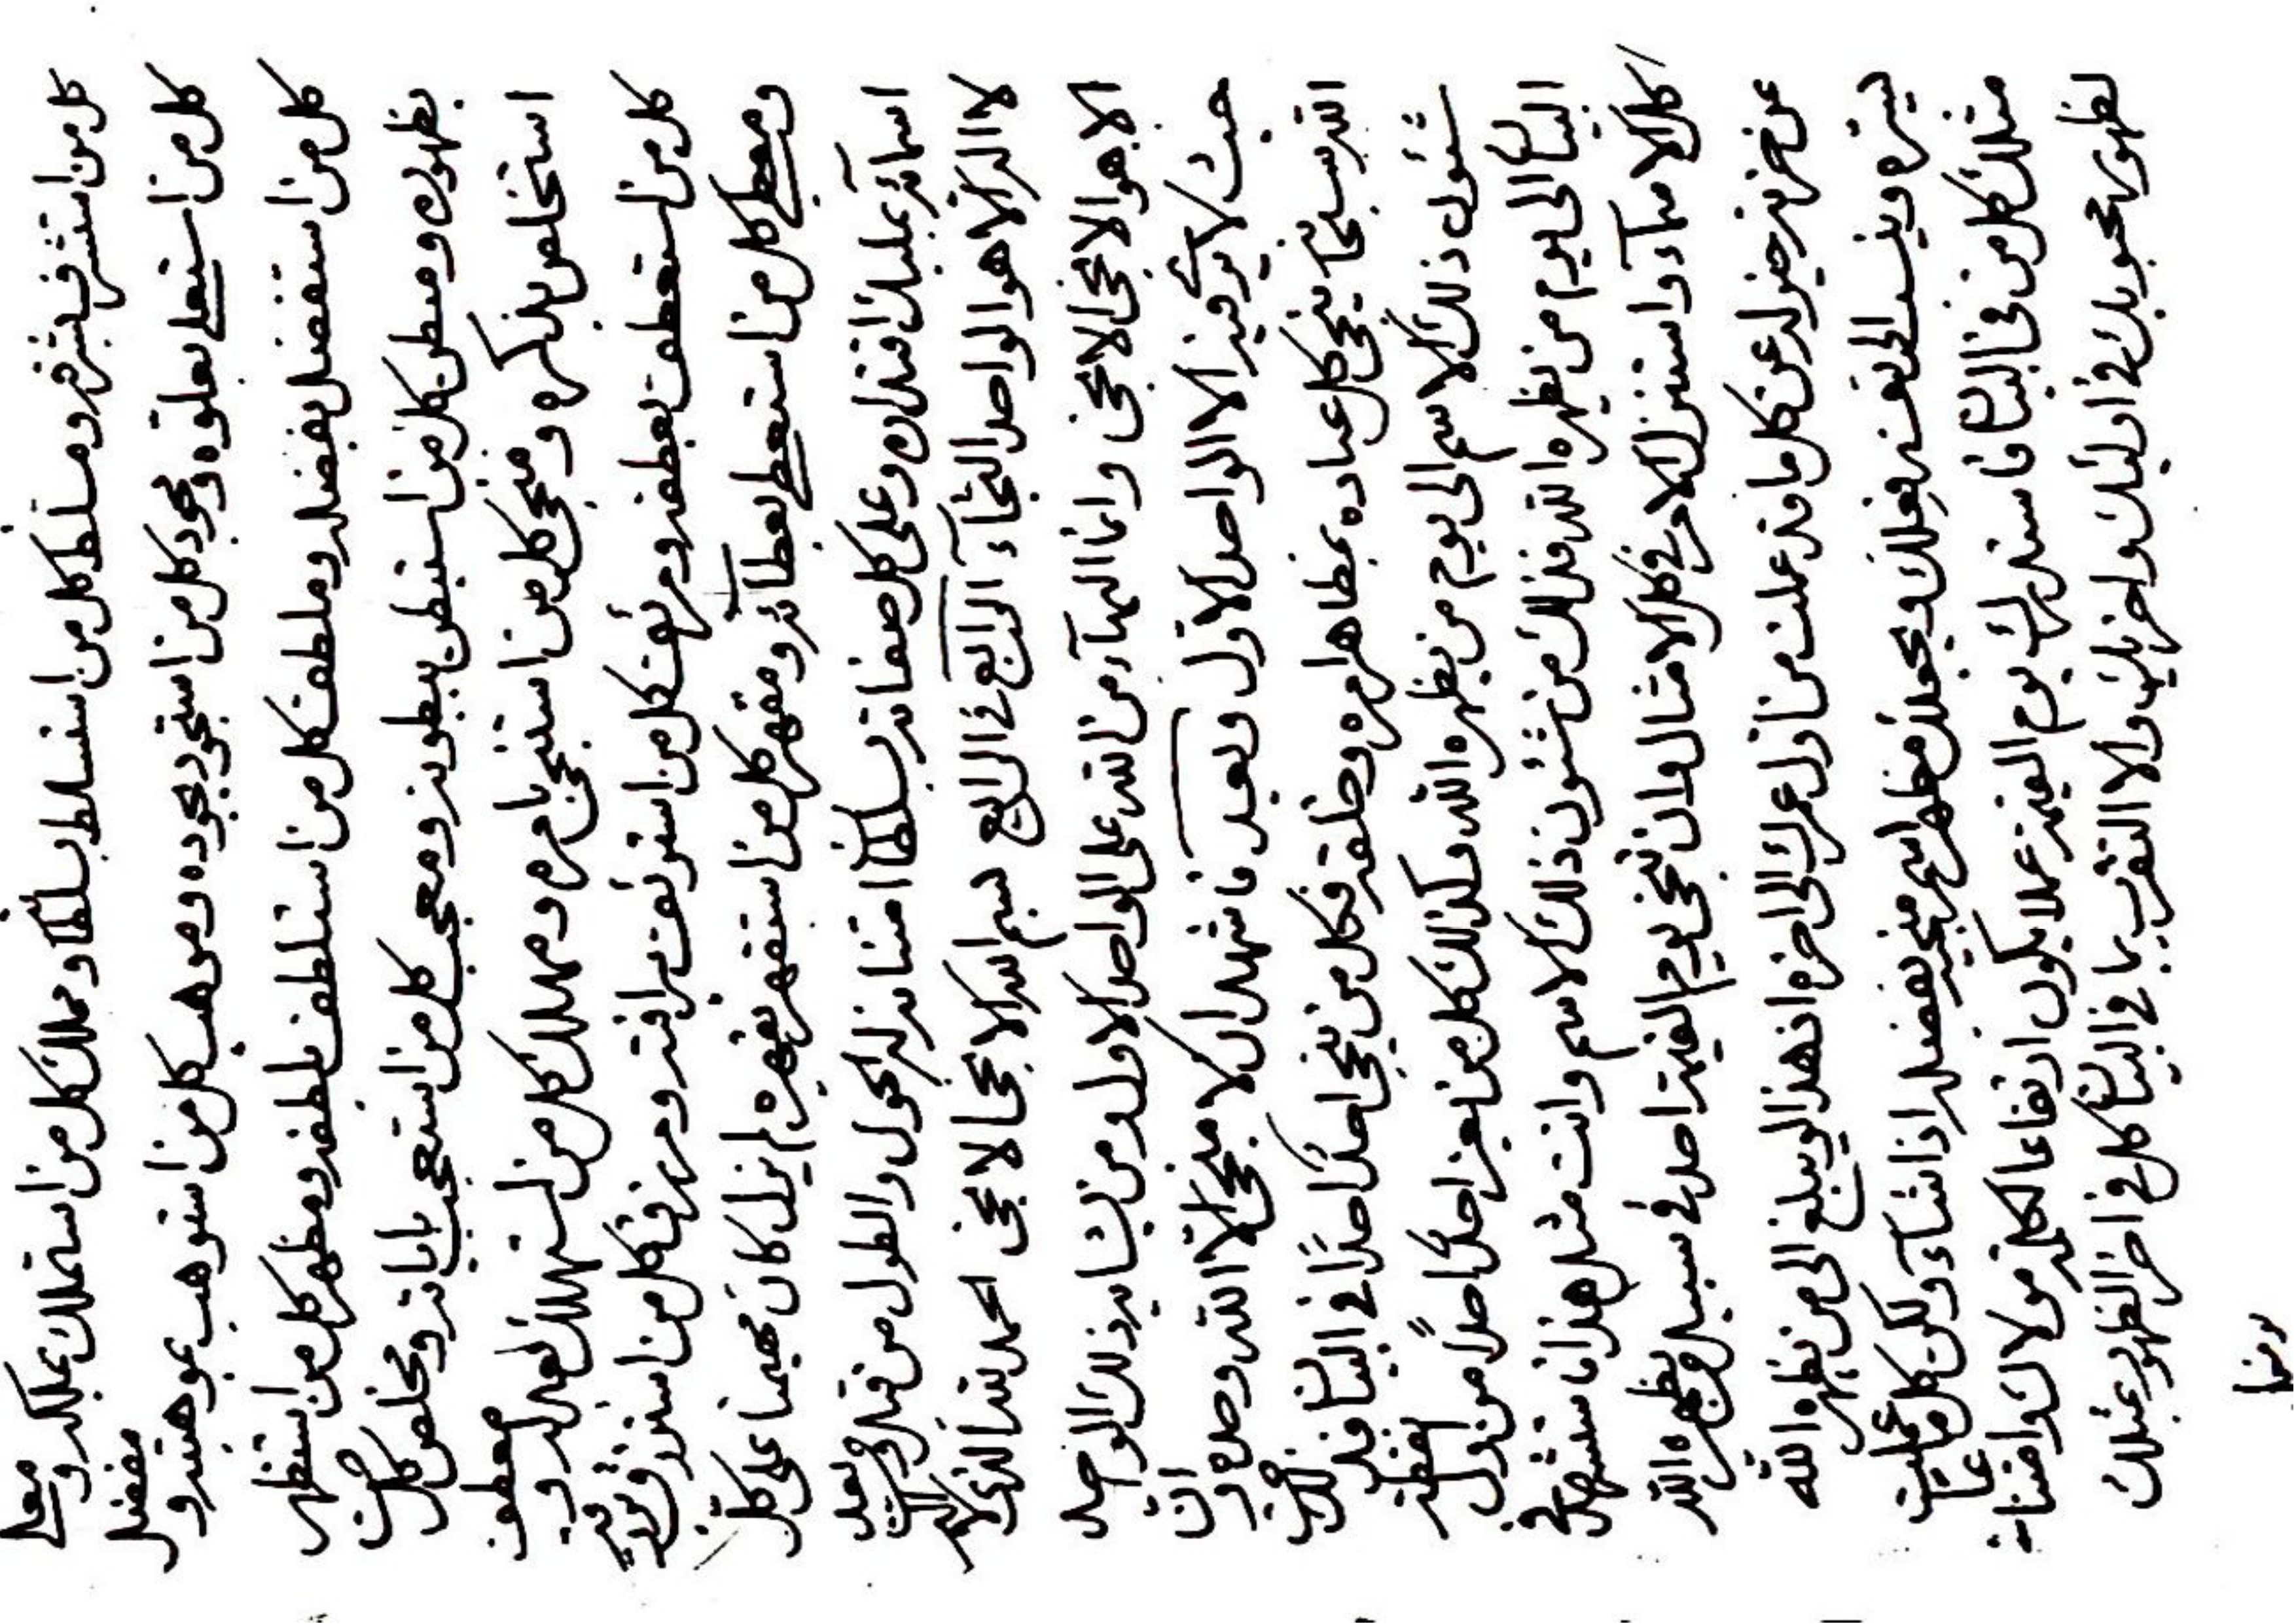 كل من استشرف بشرفه ومسلط كل من استسلط بسلطانه ومملك كل من استملك بملكه ومعلى
كل من استعلى بعلوه ومجود كل من استجود بجوده وموهب كل من استوهب بموهبته ومفضل
كل من استفضل بفضله وملطف كل من استلطف بلطفه ومظهر كل من استظهر
بظهوره ومبطن كل من استبطن ببطونه ومعجب كل من استعجب باياته ومخلص كل من
استخلص بذكره ومنجى كل من استنجى بامره ومهلك كل من استهلك بعدله ومعطف
كل من استعطف بعطفه ومرئف كل من استرئف برافته ومرزق كل من استرزق برزقه
ومعطى كل من استعطى بعطائه ومقهر كل من استقهر بقهره لم يزل كان مهيمنا على كل
اسمائه بمليك اقتداره وعلى كل صفاته بسلطان امتناعه له الحول والطول من قبل ومن بعد
لا اله الا هو الواحد النجاء الرابع في الرابع بسم الله الانجا الانجى الحمد لله الذي لا اله
الا هو الانجى الانجى وانما البهاء من الله على الواحد الاول ومن يشابه ذلك الواحد
حيث لا يرى فيه الا الواحد الاول وبعد فاشهد ان لا منجى الا الله وحده وان
الله سبحانه ينجى كل عباده بمظاهر امره وخلقه فكل من ينجى احدا احدا في البيان فذلك من
شئون ذلك الاسم الى يوم من يظهره الله وكذلك كل من يعز احدا احدا من دون
البيان الى يوم من يظهره الله فذلك من شئون ذلك الاسم وانت مثل هذا فاستشهد في
كل الاسماء واستنزل الامر في كل الامثال وان تنجى يوم القيمة احد في سبيل من يظهره الله
عن حزنه خير له عن كل ما قد عملت من اول عمرك الى اخره اذ هذا لو يبلغ الى من يظهره الله
ليسره وينسب الى نفسه فعلك ويجعلك مظهر اسم منجيه بفضله اذا شاء ولكن كل ما عملت
مثلك كل من في البيان فاستدرك يوم القيمة عملا يكون ارتفاعا لكلمة مولاك وامتناعا
لظهور محبوبك في اوليك واخريك والا التقرب بما في البيان كل في اخر الظهور عندك